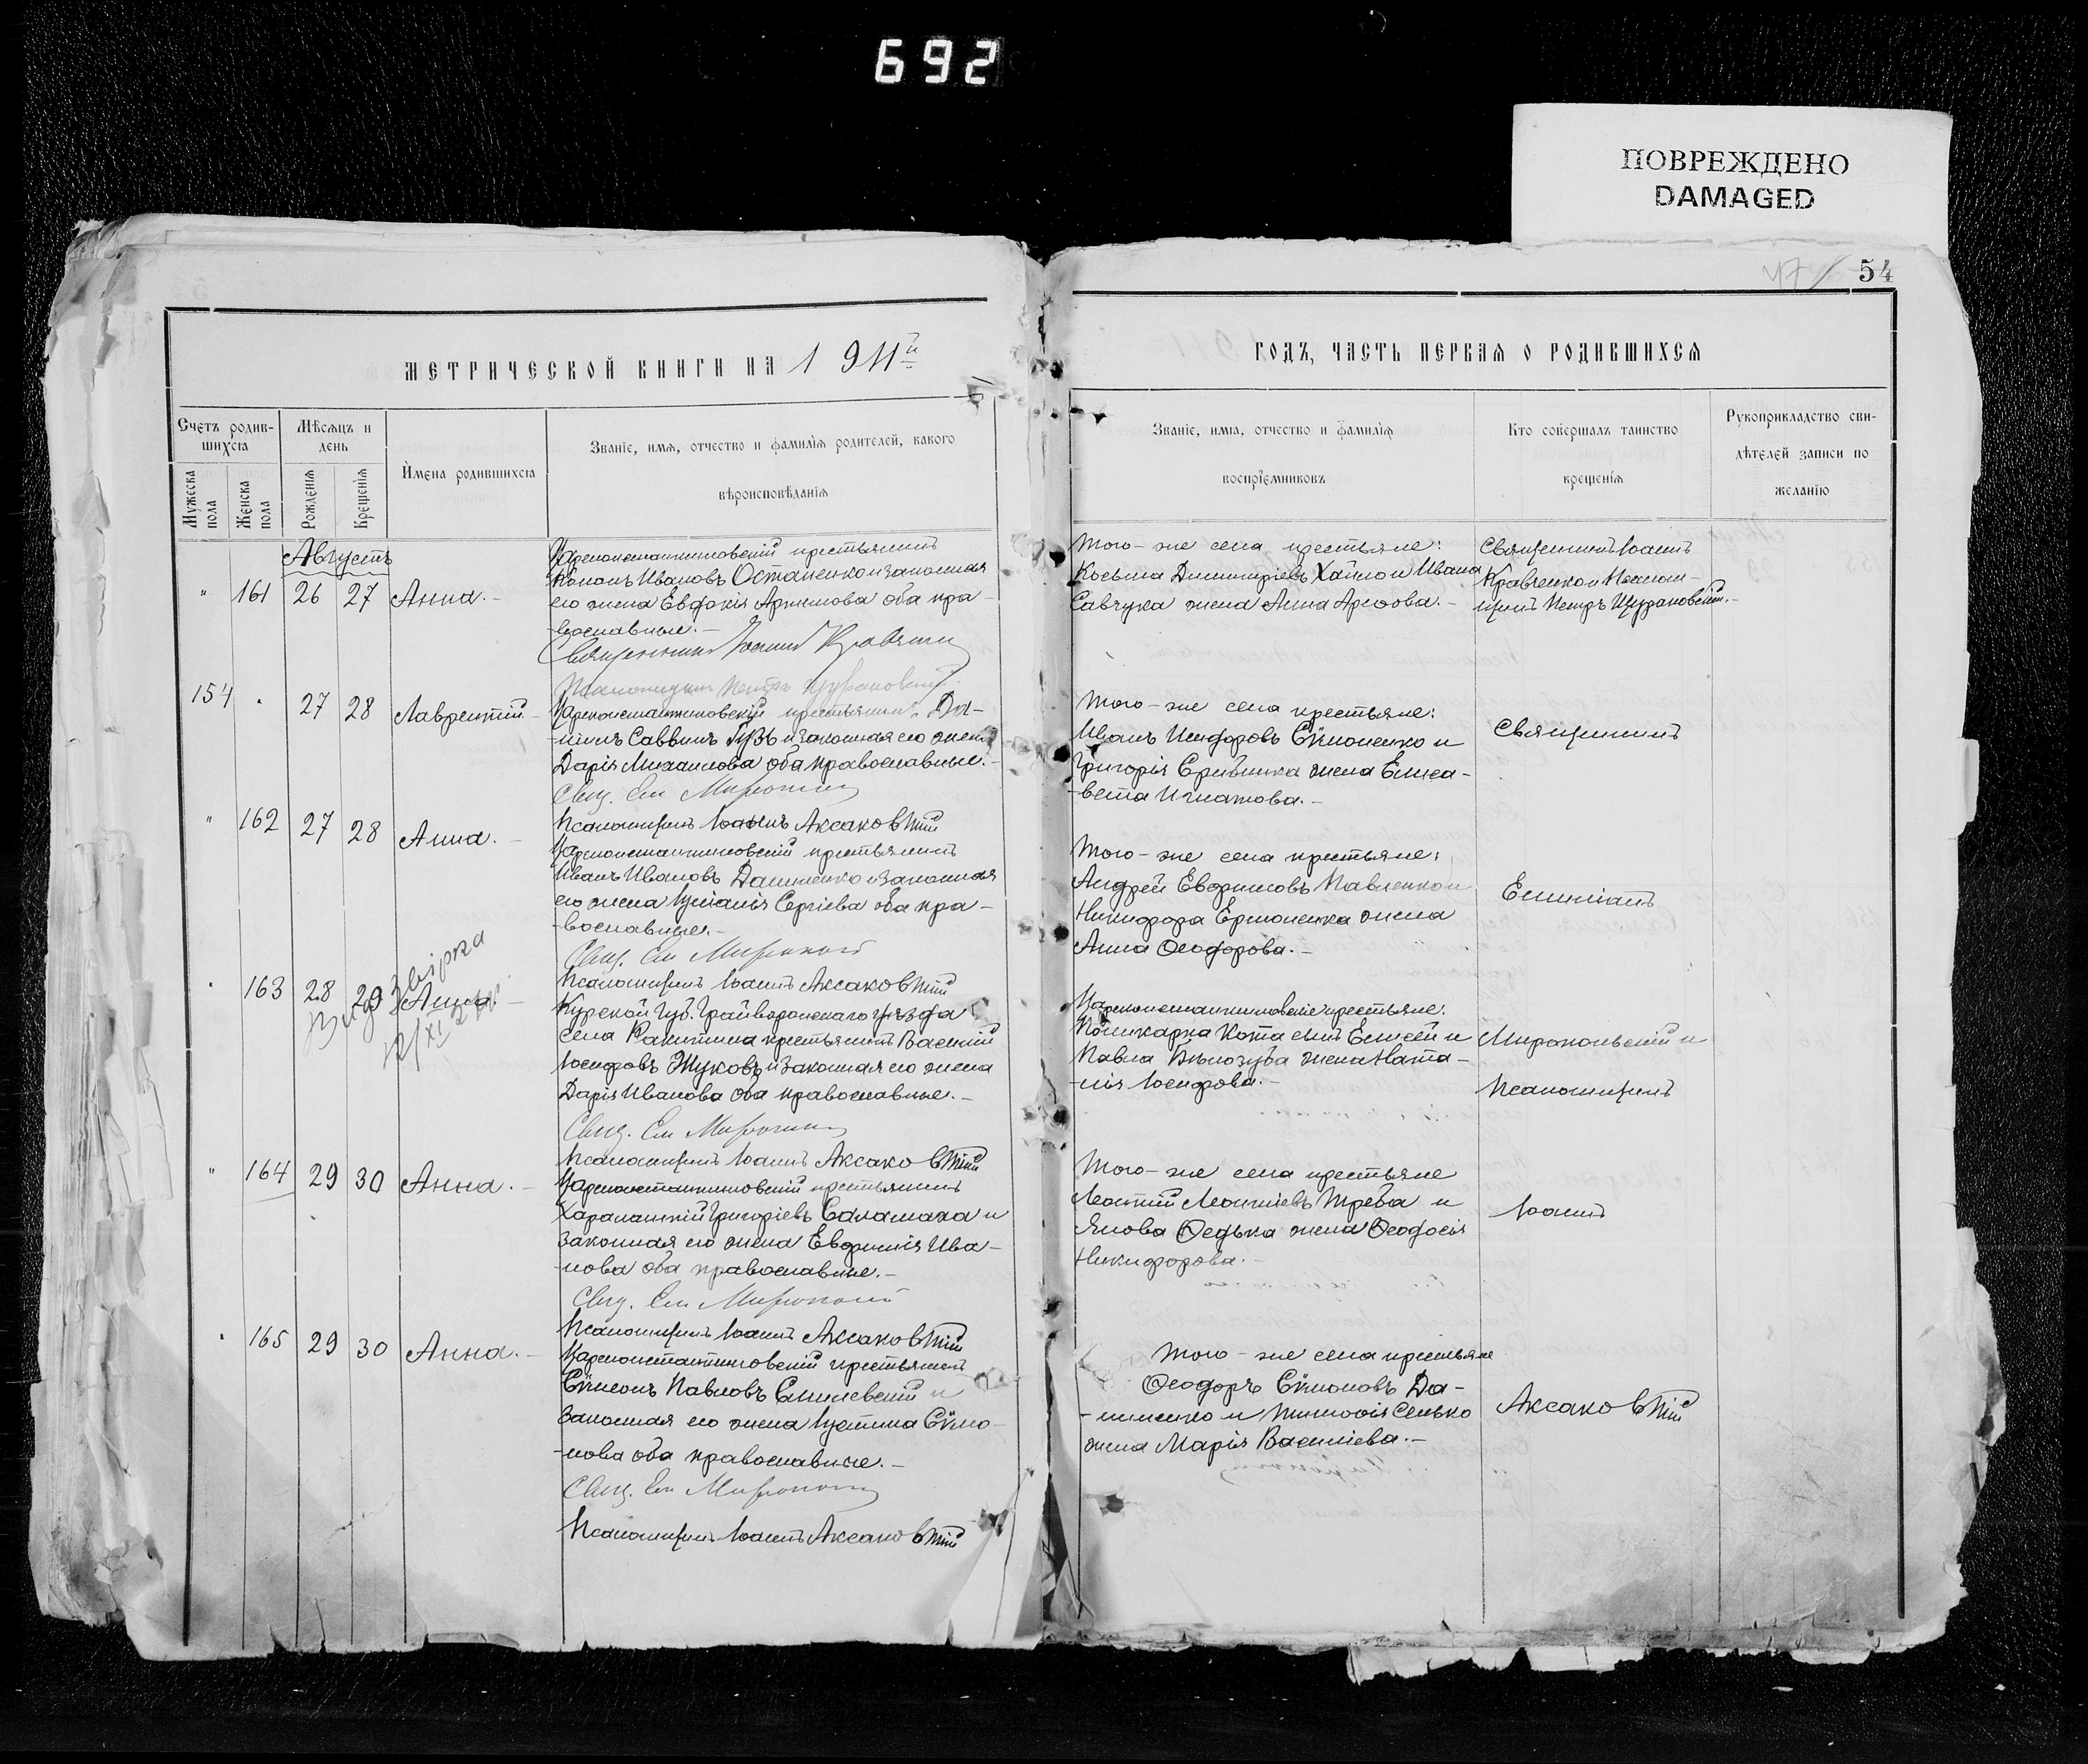 692
ПОВРЕЖДЕНО
DAMAGED
54
МЕТРИЧЕСКОЙ КНИГИ НА 1911й
ГОДЪ, ЧАСТЬ ПЕРВАЯ О РОДИВШИХСЯ
Счетъ родив-
шихся
Мужеска пола
Женска пола
Мѣсяцъ и
день
Рожденія
Крещенія
Имена родившихся
Званіе, имя, отчество и фамилія родителей, какого
вѣроисповѣданія
Званіе, имя, отчество и фамилія
воспріемниковъ
Кто совершалъ таинство
крещенія
Рукоприкладство сви-
дѣтелей записи по
желанію
Августъ
" 161 26 27 Анна.-
Цареконстантиновскій крестьянинъ
Кононъ Ивановъ Остапенко и законная
его жена Евдокія Артемова оба пра-
-вославные.-
Священникъ Іоаннъ Кравченко
Псаломщикъ Петръ Щурановскій
Того-же села крестьяне:
Косьма Димитріевъ Хайло и Ивана
Савчука жена Анна
Священникъ Іоаннъ
Кравченко и Псалом-
щикъ Петръ Щурановскій.-
154 27 28 Лаврентій.-
Цареконстантиновскій крестьянинъ Да-
-ніилъ Саввинъ Гузь и законная его жена
Дарія Михаилова оба православные.-
Свящ. Ем
Псаломщикъ Іоаннъ Аксаковскій
Того-же села крестьяне:
Иванъ Исидоровъ Сѵмоненко и
Григорія жена Елиса-
-вета Игнатова.-
Священникъ
" 162 27 28 Анна.-
Цареконстантиновскій крестьянинъ
Иванъ Ивановъ Данименко и законная
его жена Сергіева оба пра-
-вославные.-
Свящ. Ем
Псаломщикъ Іоаннъ Аксаковскій
Того-же села крестьяне:
Андрей Евфимовъ Павленко и
Никифора Ермоленка жена
Анна Ѳеодорова.-
Емиліанъ
163 28 29 Анна.-
звірка
Курской губ. Грайворонскаго уѣзда
села Ракитина крестьянинъ Василій
Іосифовъ Жуковъ и законная его жена
Дарія Иванова оба православные.-
Свящ. Ем
Псаломщикъ Іоаннъ Аксаковскій
Цареконстантиновскіе крестьяне:
Поликарпа Кота сынъ Елисей и
Павла Бѣлозуба жена Ната-
-лія Іосифова.-
и
Псаломщикъ
" 164 29 30 Анна.-
Цареконстантиновскій крестьянинъ
Харлампій Григоріевъ Саламаха и
законная его жена Евфимія Ива-
-нова оба православные.-
Свящ. Ем
Псаломщикъ Іоаннъ Аксаковскій
Того-же села крестьяне
Леонтій Леонтіевъ Треба и
Якова Ѳедька жена Ѳеодосія
Никифорова.-
Іоаннъ
165 29 30 Анна.-
Цареконстантиновскій крестьянинъ
Сѵмеонъ Павловъ и
законная его жена Іустина Сѵмо-
-нова оба православные.-
Свящ. Ем
Псаломщикъ Іоаннъ Аксаковскій
Того-же села крестьяне
Ѳеодоръ Сѵмоновъ Да-
-нименко и Тимоѳія Сенько
жена Марія Василіева.-
Аксаковскій